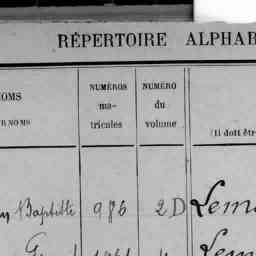 RÉPERTOIRE ALPHAB
NOMS
NUMÉROS
ma-
tricules
NUMÉRO
du
volume
(Il doit êtr
Baptiste 986 2D Lem
Lem